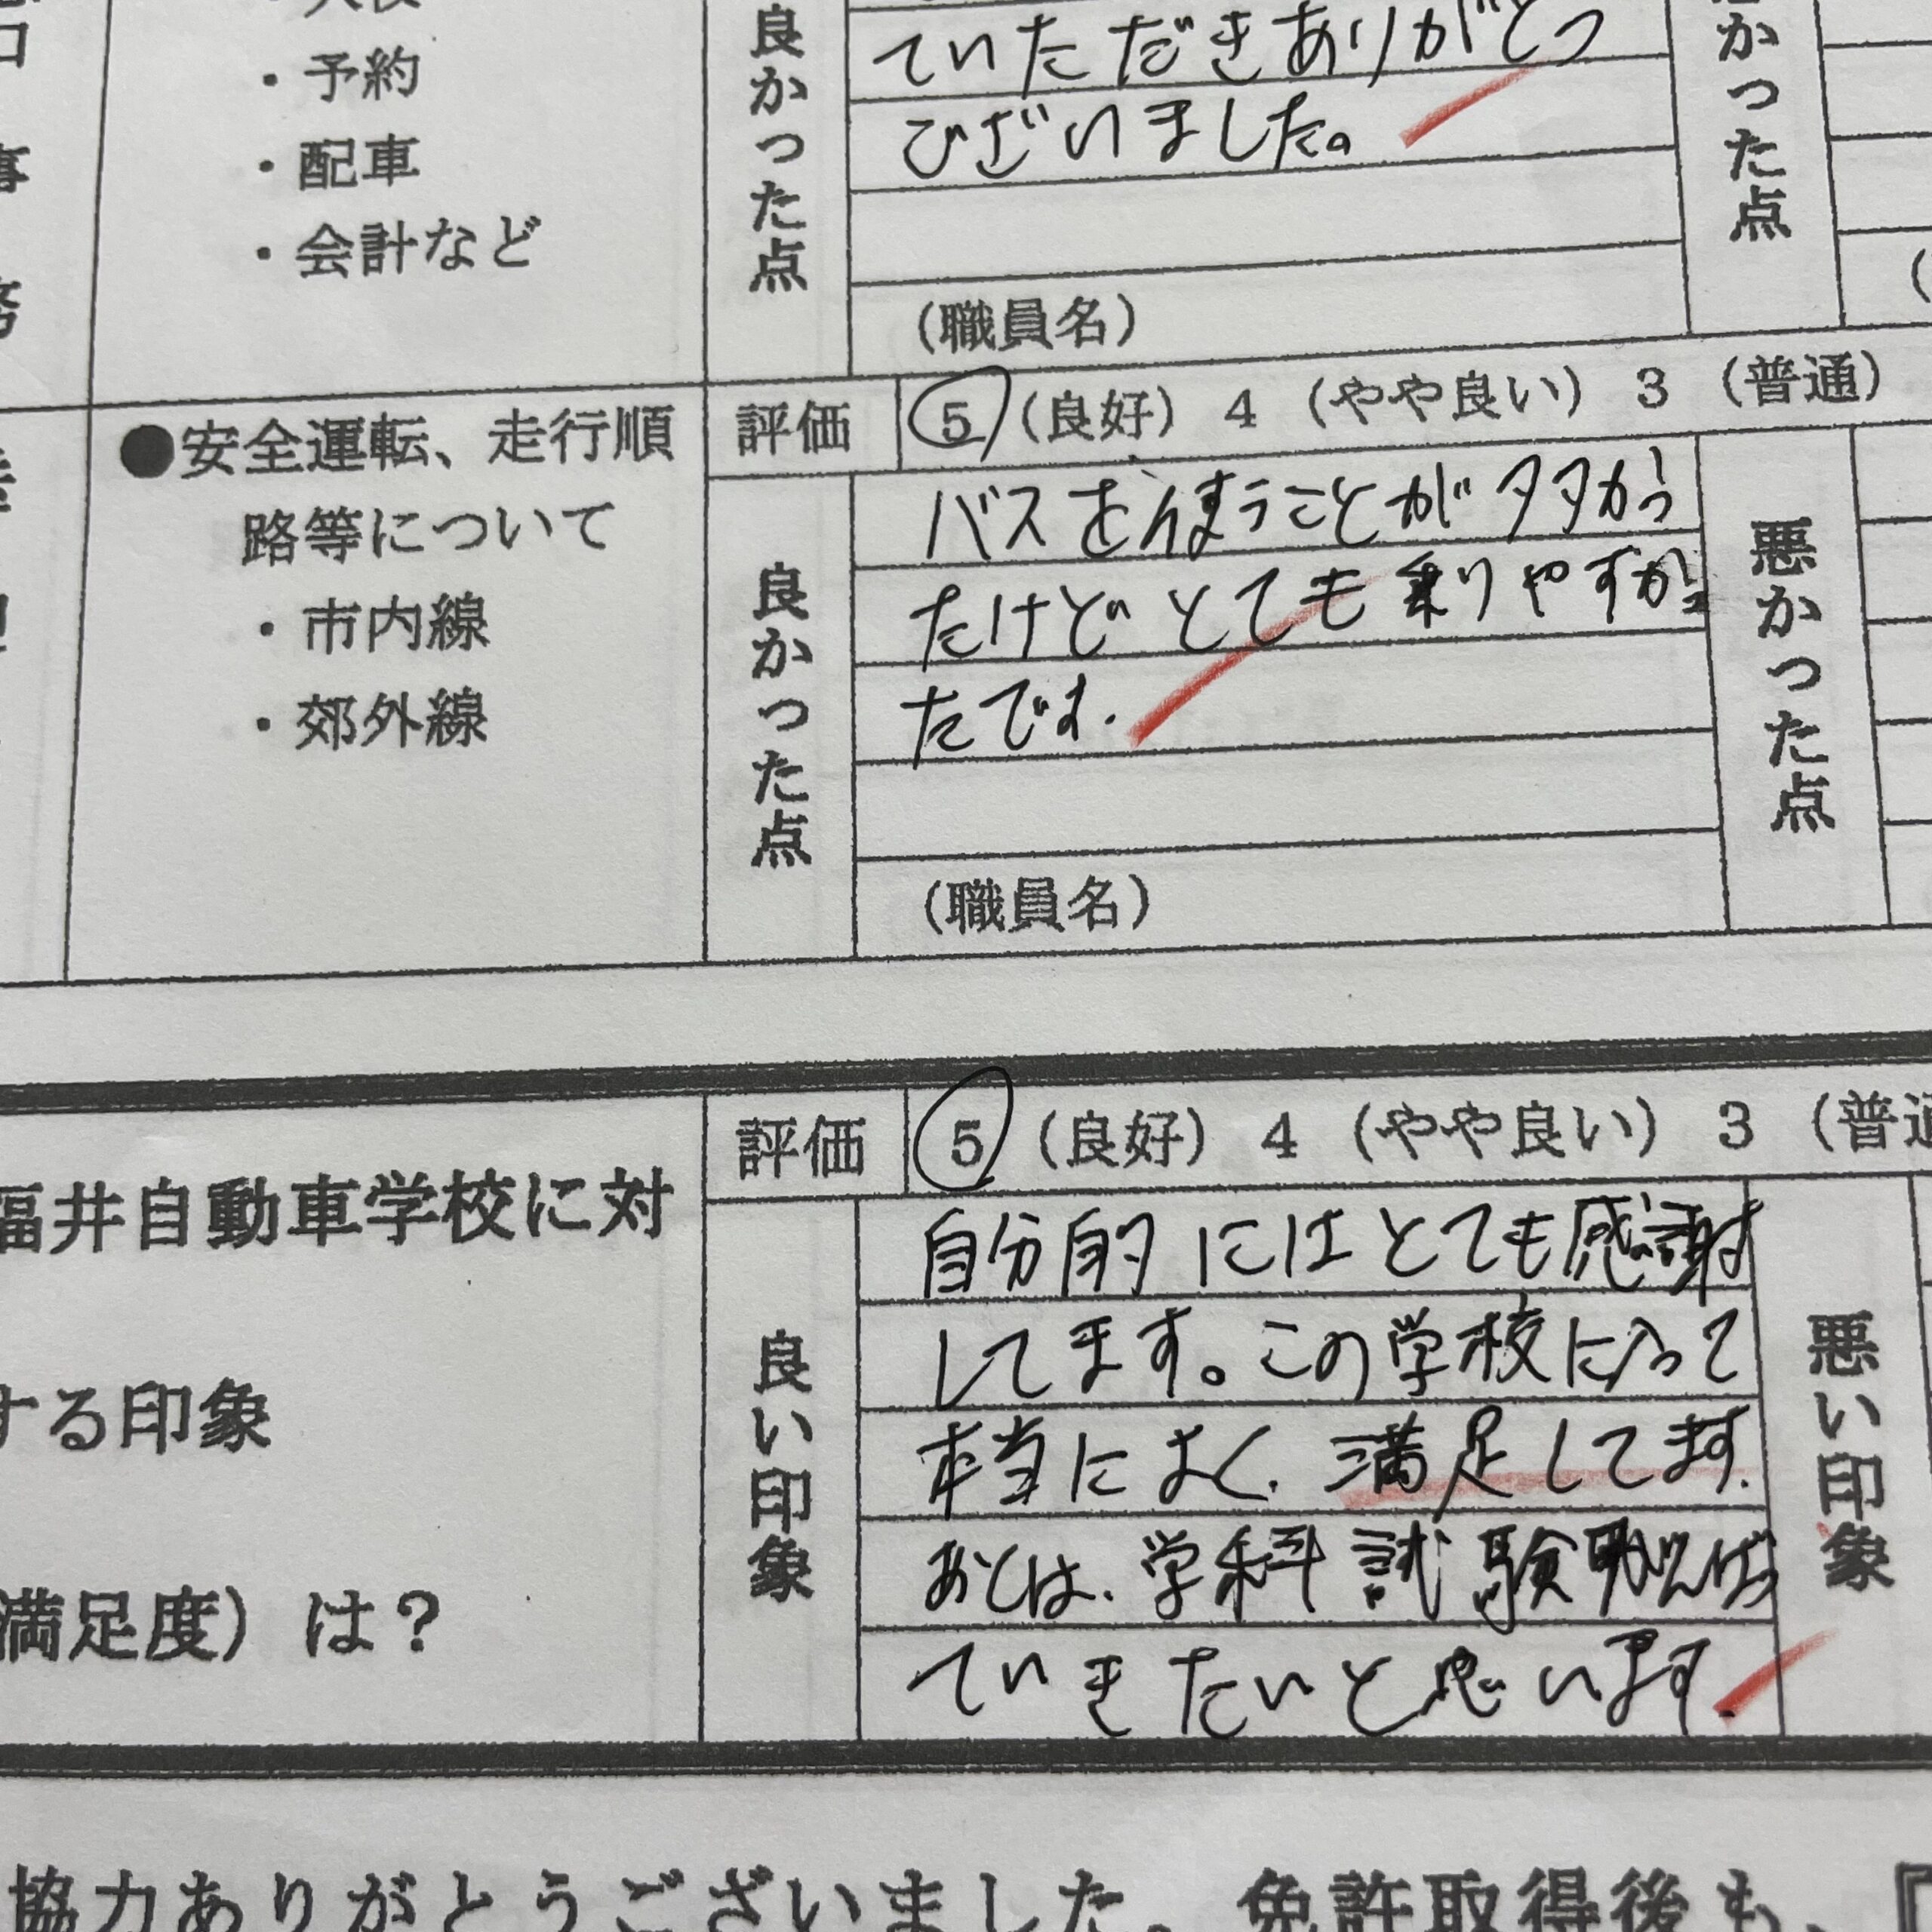 良かった点
ていただきありがとう
ございました。
かった点
・予約
・配車
・会計など
(職員名)
●安全運転、走行順
路等について
・市内線
・郊外線
評価
5(良好) 4 (やや良い) 3 (普通)
良かった点
バスを使うことが多かっ
たけどとても乗りやすかっ
たです.
(職員名)
悪かった点
福井自動車学校に対
する印象
満足度) は?
評価
5 (良好) 4 (やや良い) 3 (普通
良い印象
自分的にはとても感謝
してます。この学校に入って
本当によく.満足してます.
あとは.学科試験
ていきたいと思います.
悪い印象
協力ありがとうございました。免許取得後も、『